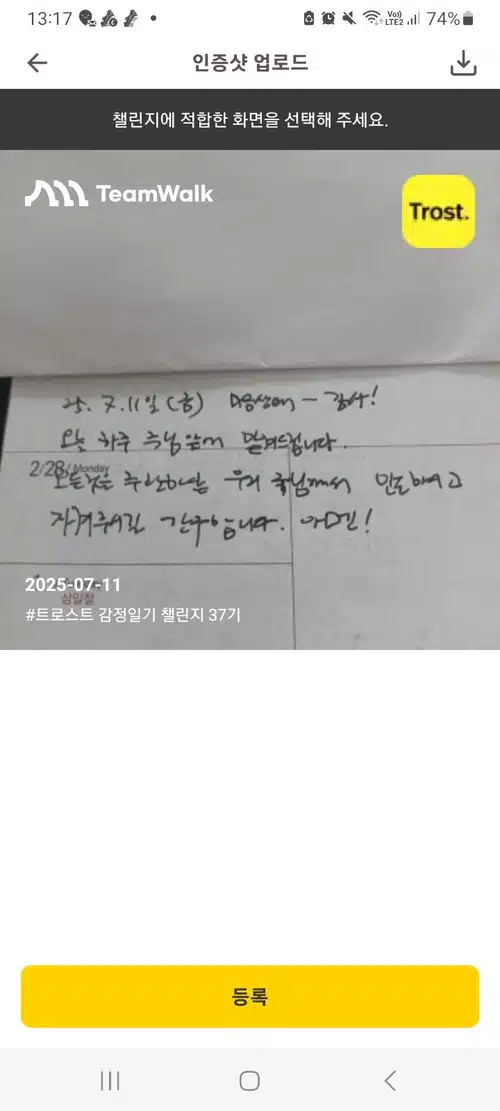 13:17
Vo))
LTE2
74%
인증샷 업로드
챌린지에 적합한 화면을 선택해 주세요.
TeamWalk
Trost.
25. 7. 11일 (금) 마음상태 - 감사!
오늘 하루 주님앞에 맡겨드립니다.
2/28/Monday
모든것을 주안하나님 우리 주님께서 인도하여고
지켜주시길 간구합니다. 아멘!
2025-07-11
삼일절
#트로스트 감정일기 챌린지 37기
등록